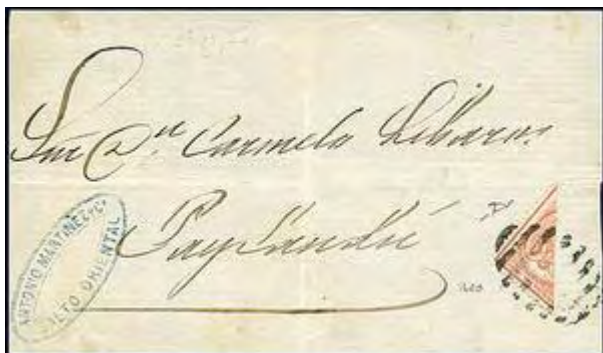 Sor Dn Carmelo Libaros
Paysandú
ANTONIO MARTINEZ y Ca
SALTO ORIENTAL